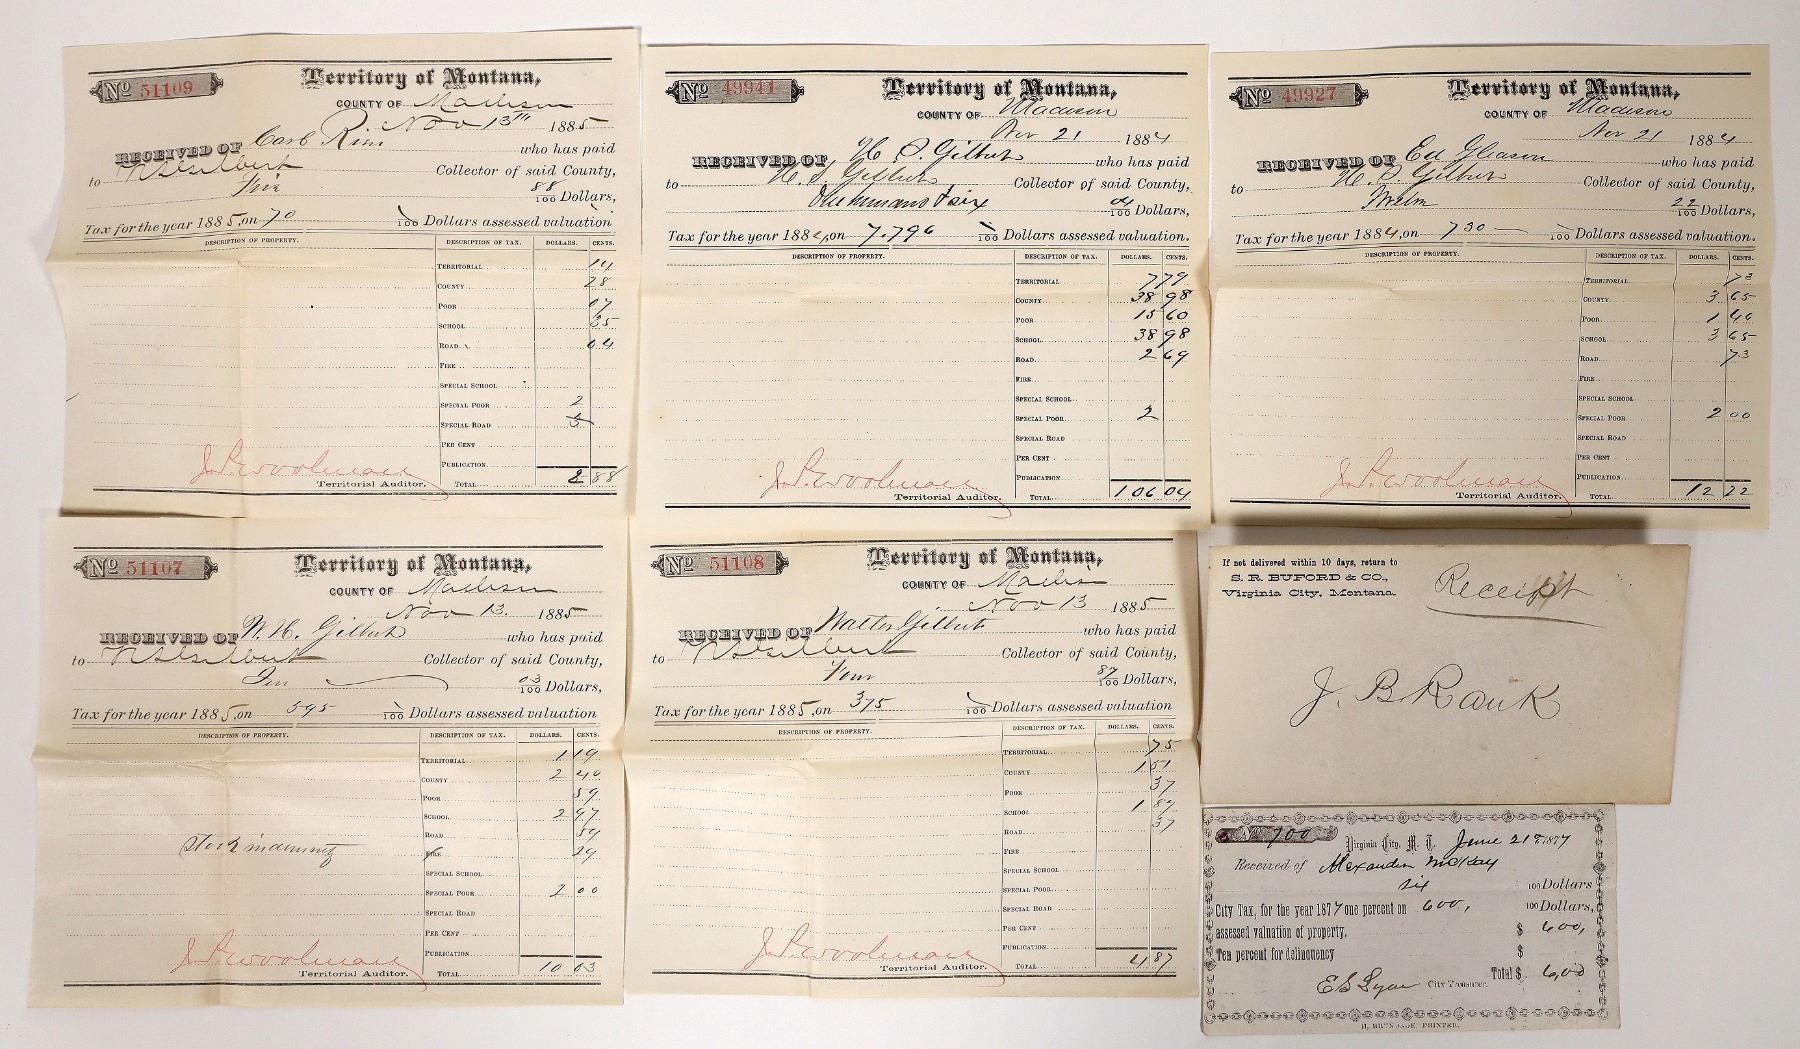 No 51109
Territory of Montana,
COUNTY OF Madison
Nov 13th 1885
RECEIVED OF Carl Rini who has paid
to Collector of said County,
Five 88/100 Dollars,
Tax for the year 1885, on 70 /100 Dollars assessed valuation
DESCRIPTION OF PROPERTY. DESCRIPTION OF TAX. DOLLARS. CENTS.
TERRITORIAL 14
COUNTY 28
POOR 07
SCHOOL 35
ROAD 04
FIRE
SPECIAL SCHOOL
SPECIAL POOR 2
SPECIAL ROAD 3
PER CENT
PUBLICATION
TOTAL 2 88
J. P. Woolman
Territorial Auditor.
No 49941
Territory of Montana,
COUNTY OF Madison
Nov 21 1884
RECEIVED OF, H. S. Gilbert who has paid
to H. S. Gilbert Collector of said County,
One hundred & six 04/100 Dollars,
Tax for the year 1884, on 7.796 /100 Dollars assessed valuation.
DESCRIPTION OF PROPERTY. DESCRIPTION OF TAX. DOLLARS. CENTS.
TERRITORIAL 7 79
COUNTY 38 98
POOR 15 60
SCHOOL 38 98
ROAD 2 69
FIRE
SPECIAL SCHOOL
SPECIAL POOR 2
SPECIAL ROAD
PER CENT
PUBLICATION
TOTAL 106 04
J. P. Woolman
Territorial Auditor.
No 49927
Territory of Montana,
COUNTY OF Madison
Nov 21 1884
RECEIVED OF Ed Gleason who has paid
to H. S. Gilbert Collector of said County,
Twelve 22/100 Dollars,
Tax for the year 1884, on 730 /100 Dollars assessed valuation.
DESCRIPTION OF PROPERTY. DESCRIPTION OF TAX. DOLLARS. CENTS.
TERRITORIAL 73
COUNTY 3 65
POOR 1 46
SCHOOL 3 65
ROAD 73
FIRE
SPECIAL SCHOOL
SPECIAL POOR 2 00
SPECIAL ROAD
PER CENT
PUBLICATION
TOTAL 12 22
J. P. Woolman
Territorial Auditor.
No 51107
Territory of Montana,
COUNTY OF Madison
Nov 13. 1885
RECEIVED OF W. H. Gilbert who has paid
to Gilbert Collector of said County,
Ten 03/100 Dollars,
Tax for the year 1885, on 595 /100 Dollars assessed valuation
DESCRIPTION OF PROPERTY. DESCRIPTION OF TAX. DOLLARS. CENTS.
TERRITORIAL 1 19
COUNTY 2 40
POOR 59
SCHOOL 2 97
ROAD 59
FIRE 29
SPECIAL SCHOOL
SPECIAL POOR 2 00
SPECIAL ROAD
PER CENT
PUBLICATION
TOTAL 10 03
J. P. Woolman
Territorial Auditor.
No 51108
Territory of Montana,
COUNTY OF Madison
Nov 13 1885
RECEIVED OF Walter Gilbert who has paid
to Gilbert Collector of said County,
Four 87/100 Dollars,
Tax for the year 1885, on 375 /100 Dollars assessed valuation
DESCRIPTION OF PROPERTY. DESCRIPTION OF TAX. DOLLARS. CENTS.
TERRITORIAL 75
COUNTY 1 51
POOR 37
SCHOOL 1 87
ROAD 37
FIRE
SPECIAL SCHOOL
SPECIAL POOR
SPECIAL ROAD
PER CENT
PUBLICATION
TOTAL 4 87
J. P. Woolman
Territorial Auditor.
If not delivered within 10 days, return to
S. R. BUFORD & CO.,
Virginia City, Montana.
Receipt
J. B Rank
No 700
Virginia City, M. T. June 21st 1877
Received of Alexander McKay
Six 100 Dollars
City Tax, for the year 1877 one percent on 600, 100 Dollars,
assessed valuation of property. $ 600,
Ten percent for delinquency $
Total $ 6,00
City Treasurer.
H. BRUNDAGE, PRINTER.